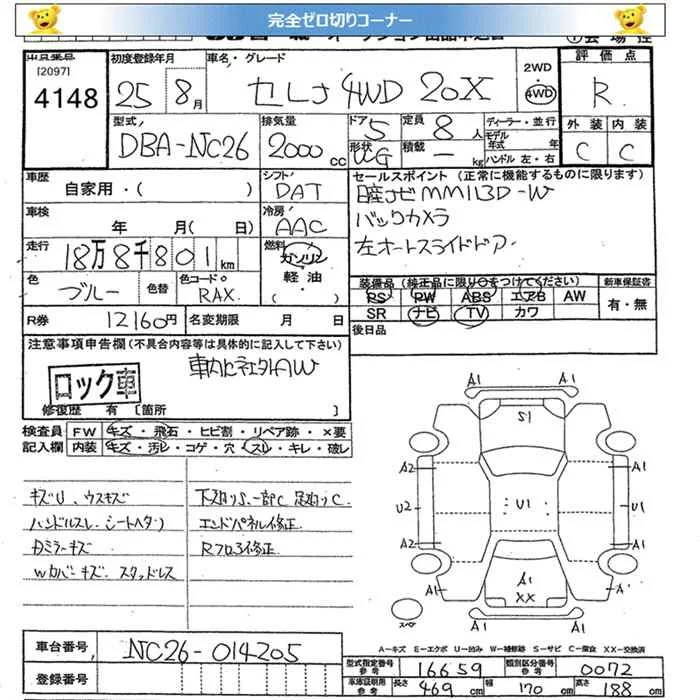 完全ゼロ切りコーナー
出品番号 初度登録年月 車名・グレード 2WD 4WD 評価点
[2097]
4148 25年 8月 セレナ 4WD 20X R
型式 排気量 ドア 定員 ディーラー・並行 外装 内装
DBA-NC26 2000cc 5 8人 モデル年式 年
形状 積載 ハンドル 左・右 C C
車歴 シフト セールスポイント (正常に機能するものに限ります)
自家用・( ) DAT 日産ナビ MM113D-W
車検 冷房 バックカメラ
年 月( 日) AAC 左オートスライドドア
走行 燃料
18万8千801km ガソリン
色 色替 色コード 軽・油 装備品 (純正品に限り○をつけてください) 新車保証書
ブルー RAX (・) PS PW ABS エアB AW 有・無
R券 12160円 名変期限 月 日 SR ナビ TV カワ
後日品
注意事項申告欄(不具合内容等は具体的に記入して下さい)
ロック車
修復歴 有 [箇所 ]
検査員 FW キズ・飛石・ヒビ割・リペア跡・×要
記入欄 内装 キズ・汚レ・コゲ・穴・スレ・キレ・破レ
キズU、ウスキズ 下廻りS、一部C 足廻りC
ハンドルスレ、シートヘタリ エンドパネル修正
ミラーキズ Rフロア修正
Wカバーキズ、スタッドレス
A1 A1
S1
A2 A1
U2 U1 U1
A2 A1
A1 A1
XX
A1 A1
スペア
A-キズ E-エクボ U-凹み W-補修跡 S-サビ C-腐食 XX-交換済
車台番号 NC26-014205
型式指定番号 参考 16659 類別区分番号 参考 0072
登録番号 車庫証明用 参考 長さ 469cm 幅 170cm 高さ 188cm